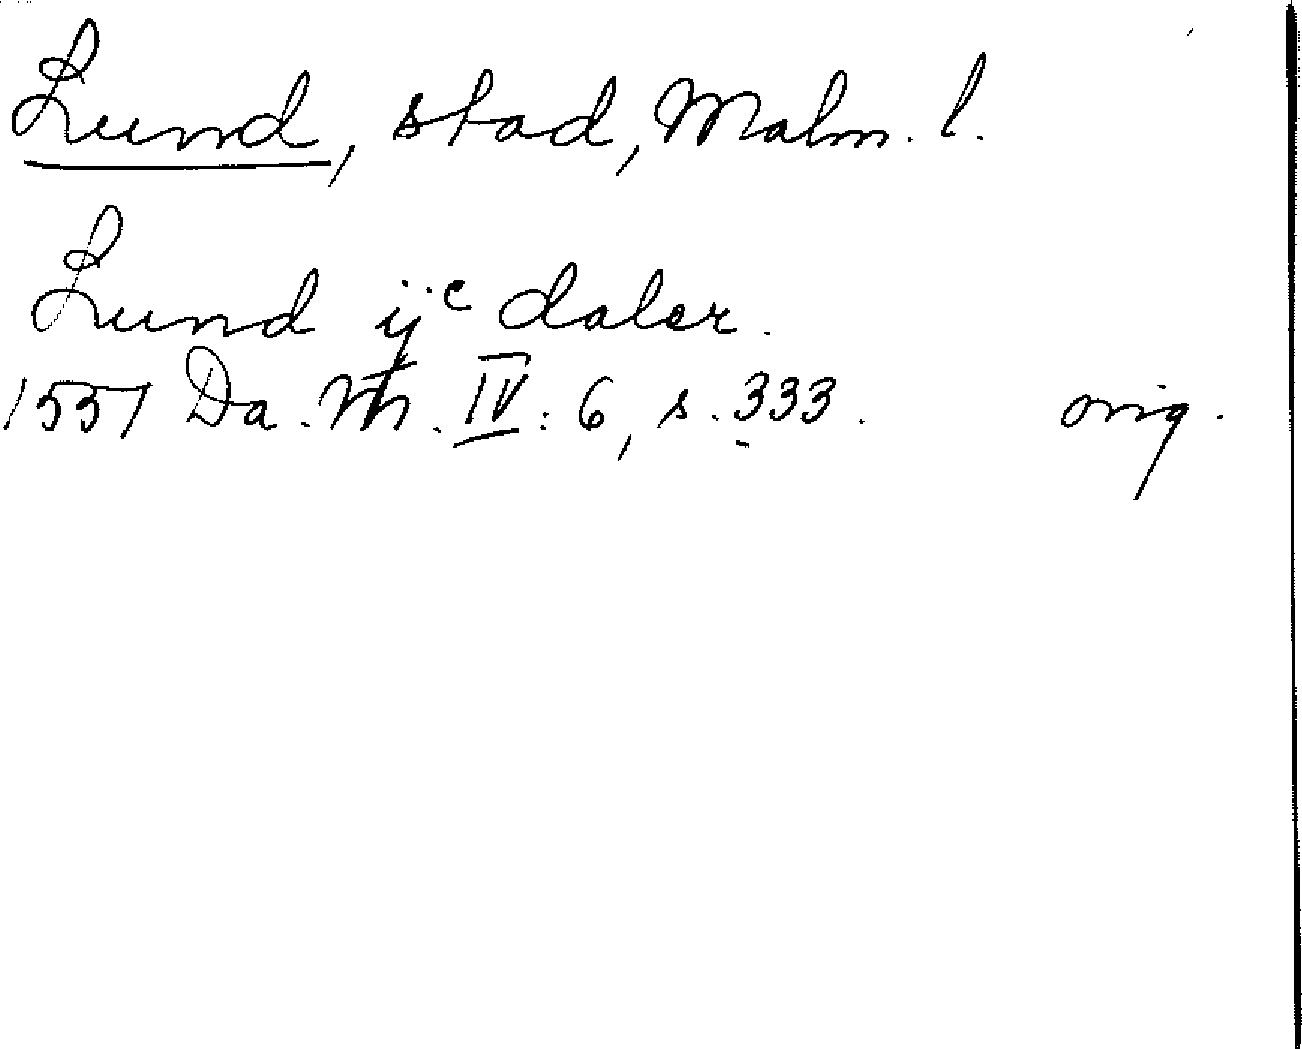 Lund, stad, Malm. l.
Lund ijc daler.
1557 Da. M. IV: 6, s. 333. orig.